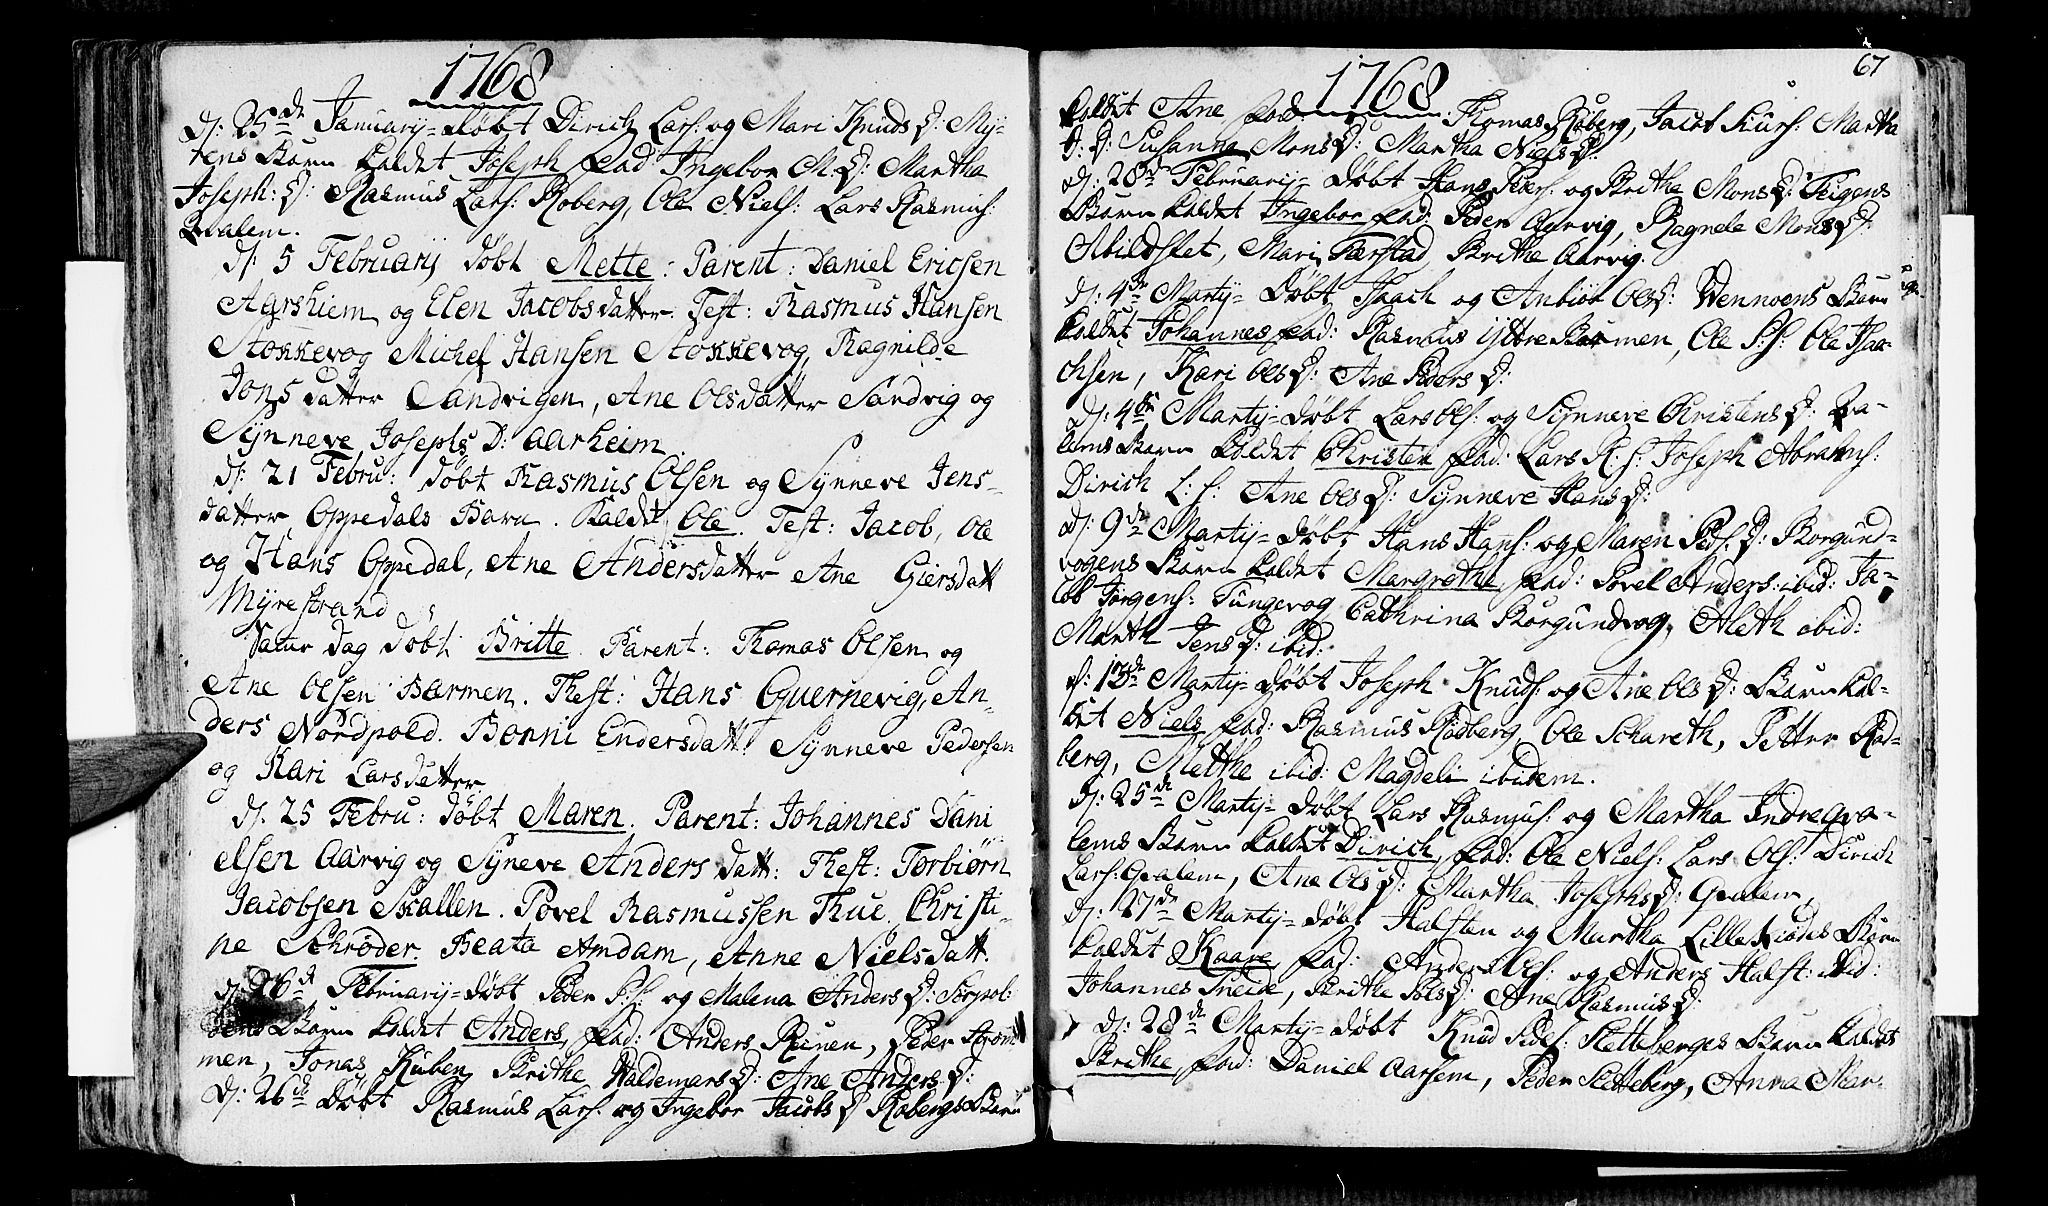 1768
D: 25de Januarij = døbt Dirich Lars: og Mari Knuds D: My-
rens Barn kaldet Joseph fad: Ingebor M. D: Martha
Joseph: D: Rasmus Lars: Roberg, Ole Niels: Lars Rasmus:
Qvalem.
D: 5 Februarij døbt Mette: Parent: Daniel Ericsen
Aarshiem og Elen Jacobsdatter. Test: Rasmus Hansen
Stokkevog Michel Hansen Stokkevog, Ragnilde
Jonsdatter Sandvigen, Ane Olsdatter Sandvig og
Synneve Josephs D: Aarheim
D: 21 Febru: døbt Rasmus Olsen og Synneve Jens-
datter Oppedals Barn. Kaldt Ole. Test: Jacob, Ole
og Hans Oppedal, Ane Andersdatter Ane Giersdatt
Myrestrand
Samme dag døbt Britte. Parent: Thomas Olsen og
Ane Olsen Barmen. Thest: Hans Quernevig, An-
ders Nordpold. Bonni Endersdatt: Synneve Pedersen
og Kari Larsdatter
D. 25 Febru: døbt Maren. Parent: Johannes Dani
elsen Aarvig og Syneve Anders datt: Thest: Torbiørn
Jacobsen Skallen. Povel Rasmussen Thue. Christi-
ne Schrøder. Beata Amdam, Anne Nielsdatt.
D: 26de Februarij = døbt Peder P: S: og Malena Anders D: Norpol-
dens Barn kaldet Anders, fad: Anders Reinen, Peder Strøm
men, Jonas Huben Brithe Waldemars D: Ane Anders D:
D: 26de Døbt Rasmus Lars: og Ingebor Jacobs D Robergs Barn
67
1768
kaldet Ane fad: Thomas Roberg, Jacob Martha
J: D: Susanna Mons D: Martha Niels D:
D: 28de Februarij = Døbt Hans Peders: og Brithe Mons D: Teigens
Barn kaldet Ingebor fad: Peder Aarvig, Ragnele Mons D:
Abildset, Mari Færstad, Brithe Aarvig.
D: 4de Martij = Døbt Isach og Anbiør Ols D: Wennoens Barn
kaldet Johannes, fad: Rasmus Yttre Barmen, Ole P: S: Ole Isaa-
chsen, Kari Ols D: Ane Peders D:
D: 4de Martij = døbt Lars Ols: og Synneve Christens D: Qva-
lems Barn kaldet Christen fad: Lars R: S: Joseph Abrahms:
Dirich L: S: Ane Ols D: Synneve Hans D:
D: 9de Martij = døbt Hans Hans: og Maren Peds: D: Borgund-
vogens Barn kaldet Margrethe, fad: Povel Anders: ibid: Ja-
cob Jørgens: Tungevog Cathrina Borgundvog, Aleth ibid:
Marth Jens D: ibid:
D: 13de Martij = døbt Joseph Knuds: og Ane Ols D: Barn kal-
det Niels fad: Rasmus Rødberg Ole Schareth, Petter Rød-
berg, Methe ibid: Magdeli ibidem.
D: 25de Martij = døbt Lars Rasmus: og Martha Indreqva-
lems Barn kaldet Dirich, fad: Ole Niels: Lars Ols: Dirich
Lars: Qvalem, Ane Ols D: Martha Josephs D: Qvalem,
D: 27de Martij = døbt Halsten og Martha Lille Barn
kaldet Kaare fad: Anders og Anders Halst: ibid:
Johannes Brithe Pols D: Ane Rasmus D:
D: 28de Martij = døbt Knud Peds: Sletteberges Barn kaldet
Brithe fad: Daniel Aarsem, Peder Sletteberg, Anna Mar-